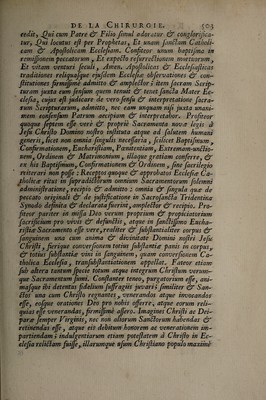 DE LA CHIRURGIE. 503
cedit, Qui cum Patre & Filio simul adoratur & conglorifica-
tur, Qui locutus est per Prophetas, Et unam sanctam Catholi-
cam & Apostolicam Ecclesiam. Confiteor unum baptisma in
remissionem peccatorum, Et expecto resurrectionem mortuorum,
Et vitam venturi seculi, Amen. Apostolicas & Ecclesiasticas
traditiones reliquasque ejusdem Ecclesiæ observationes & con-
stitutiones firmissimè admitto & amplector : item sacram Scrip-
turam juxta eum sensum quem tenuit & tenet sancta Mater Ec-
clesia, cujus est judicare de vero sensu & interpretatione sacra-
rum Scripturarum, admitto, nec eam unquam nisi juxta unani-
mem consensum Patrum accipiam & interpretabor. Profiteor
quoque septem esse verè & propriè Sacramenta novæ legis à
Jesu Christo Domino nostro instituta atque ad salutem humani
generis, licet non omnia singulis necessaria, scilicet Baptismum,
Confirmationem, Eucharistiam, Pœnitentiam, Extremam-unctio-
nem, Ordinem & Matrimonium, illaque gratiam conferre, &
ex his Baptismum, Confirmationem & Ordinem, sine sacrilegio
reiterari non posse : Receptos quoque & approbatos Ecclesiæ Ca-
tholicæ ritus in supradictorum omnium Sacramentorum solemni
administratione, recipio & admitto : omnia & singula quæ de
peccato originali & de justificatione in Sacrosancta Tridentina
Synodo definita & declarata fuerunt, amplector & recipio. Pro-
fiteor pariter in missa Deo verum proprium & propitiatorium
sacrificium pro vivis & defunctis, atque in sanctissimo Eucha-
ristiæ Sacramento esse vere, realiter & substantialiter corpus &
sanguinem una cum anima & divinitate Domini nostri Jesu
Christi, fierique conversionem totius substantiæ panis in corpus,
& totius substantiæ vini in sanguinem, quam conversionem Ca-
tholica Ecclesia, transubstantiationem appellat. Fateor etiam
sub altera tantum specie totum atque integrum Christum verum-
que Sacramentum sumi. Constanter teneo, purgatorium esse, ani-
masque ibi detentas fidelium suffragiis juvari: similiter & San-
ctos una cum Christo regnantes, venerandos atque invocandos
esse, eosque orationes Deo pro nobis offerre, atque eorum reli-
quias esse venerandas, firmissimè assero. Imagines Christi ac Dei-
paræ semper Virginis, nec non aliorum Sanctorum habendas &
retinendas esse, atque eis debitum honorem ac venerationem im-
partiendam ; indulgentiarum etiam potestatem à Christo in Ec-
clesia relictam fuisse, illarumque usum Christiano populo maximè